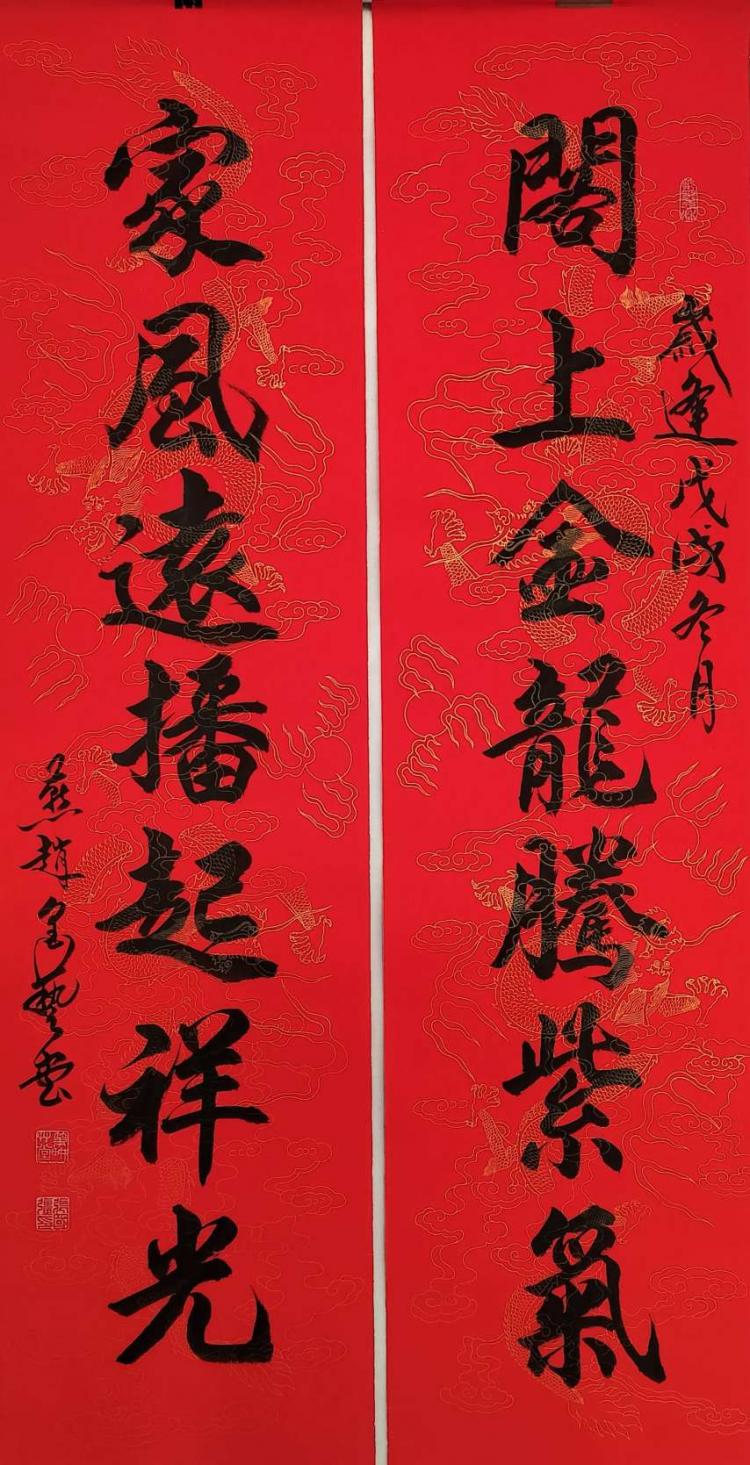 閣上金龍騰紫氣
歲逢戊戌冬月
家風遠播起祥光
燕趙